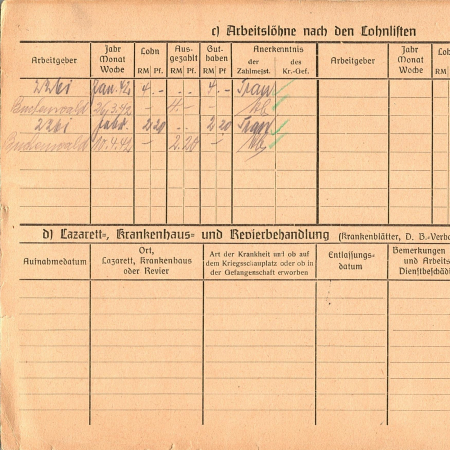 c) Arbeitslöhne nach den Lohnlisten
Arbeitgeber Jahr Monat Woche Lohn RM Pf. Aus- gezahlt RM Pf. Gut- haben RM Pf. Anerkenntnis der Zahlmeist. des Kr.-Gef. Arbeitgeber Jahr Monat Woche Lo RM
226i Jan. 42 4 - . . 4 -
26.3.42 - 4 - -
226i Febr. 2 20 . . 2 20
10.4.42 - 2 20 -
d) Lazarett-, Krankenhaus- und Revierbehandlung (Krankenblätter, D. B.-Verba
Aufnahmedatum Ort, Lazarett, Krankenhaus oder Revier Art der Krankheit und ob auf dem Kriegsschauplatz oder ob in der Gefangenschaft erworben Entlassungs- datum Bemerkungen und Arbeits Dienstbeschäd